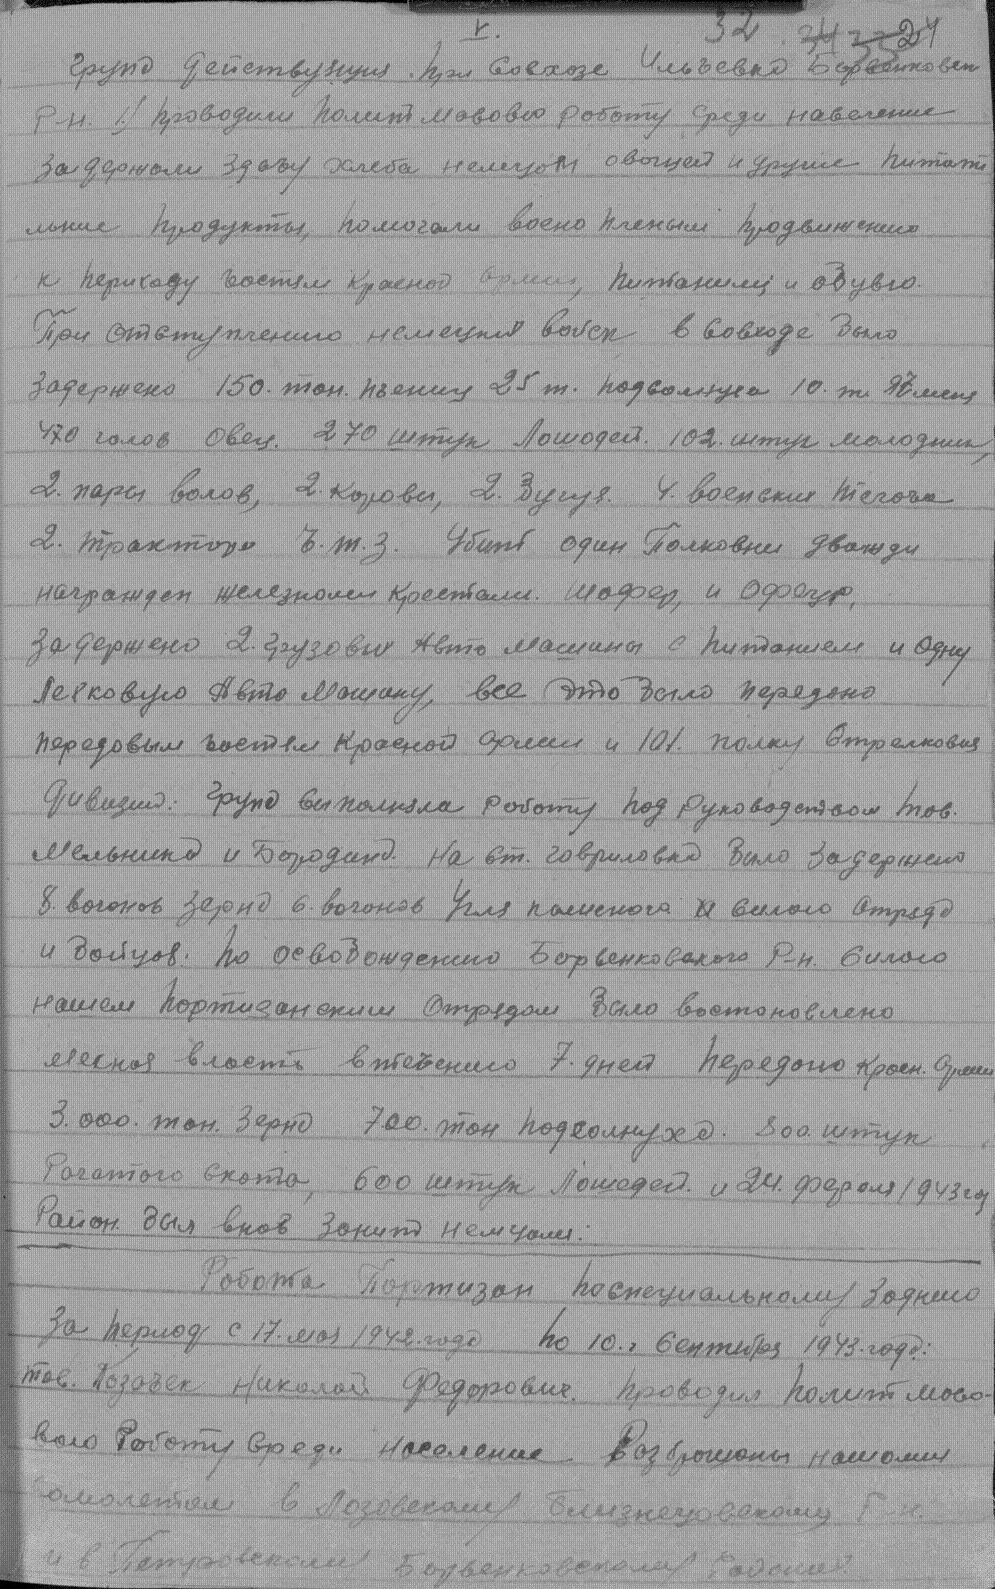 V. 32 34 33 24
Група Действующия При Совхозе Ильъевка Барвенковск
Р-н. 1/ Проводили Полит мововю роботу среди навеление
Задержали здачу хлеба немцом овощей и другие питате
льние продукты, помогали воено пленым продвижению
к переходу частям Красной армии, питанием и обувю.
При отступлению немецких войск в Совходе было
Задержено 150. тон. пшениц 25 т. подсолнуха 10. т. Ячмень
470 голов овец. 270 штук Лошодей. 102. штук молодник,
2. пары волов, 2. коровы, 2. Бугуя. 4. военских тягоча
2. трактора Ч.Т.З. Убит один Полковни дважди
награжден железномы крестами. шофер, и офецер,
Задержено 2. грузовых Авто машины с питанием и одну
Легковую Авто Машину, все это было передоно
передовым частям Красной армии и 101. полку Стрелковия
Дивизий. Група выполняла роботу под руководством тов.
Мельника и Бородина. На ст. Гавриловка было задержено
8. вогонов зерна 6. вогонов угля каменого и силаю отряда
и бойцов. По освобождению Барвенковского Р-н. силаю
нашем портизанским отрядом было востоновлено
месная власть втечению 7. дней передоно Красн. Армии
3.000. тон. зерна 700. тон подсолнуха. 800. штук
Рогатого скота, 600 штук Лошедей. и 24. февроля 1943 год
Район был внов занит немцами.
Робота Портизан поспециальному заднию
За период с 17. мая 1942. года по 10. Сентября 1943. года:
тов. Козачек Николай Федорович. проводил полит мосо-
ваю роботу среди население Разброшены нашоми
самолетам в Лозовскому Близнецовскому Р-н.
и в Петровскому Барвенковскому районе.